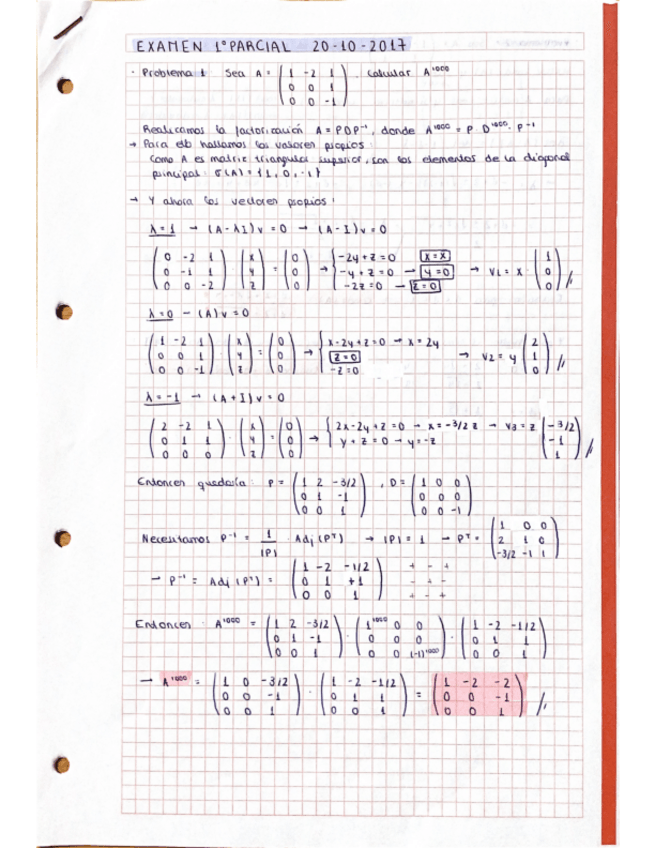 EXAMEN 1º PARCIAL 20-10-2017
· Problema 1 Sea A = ( 1 -2 1 ; 0 0 1 ; 0 0 -1 ) . Calcular A¹⁰⁰⁰
Realizamos la factorización A = PDP⁻¹, donde A¹⁰⁰⁰ = P · D¹⁰⁰⁰ · P⁻¹
→ Para ello hallamos los valores propios:
Como A es matriz triangular superior, son los elementos de la diagonal
principal: σ(A) = {1, 0, -1}
→ Y ahora los vectores propios:
λ = 1 → (A-λI)v = 0 → (A-I)v = 0
( 0 -2 1 ; 0 -1 1 ; 0 0 -2 ) · ( x ; y ; z ) = ( 0 ; 0 ; 0 ) → { -2y+z=0 x=x ; -y+z=0 → y=0 ; -2z=0 → z=0 → v1 = x · ( 1 ; 0 ; 0 ) //
λ=0 → (A)v=0
( 1 -2 1 ; 0 0 1 ; 0 0 -1 ) · ( x ; y ; z ) = ( 0 ; 0 ; 0 ) → { x-2y+z=0 → x=2y ; z=0 ; -z=0 → v2 = y ( 2 ; 1 ; 0 ) //
λ=-1 → (A+I)v=0
( 2 -2 1 ; 0 1 1 ; 0 0 0 ) · ( x ; y ; z ) = ( 0 ; 0 ; 0 ) → { 2x-2y+z=0 → x=-3/2 z ; y+z=0 → y=-z → v3 = z ( -3/2 ; -1 ; 1 ) //
Entonces quedaría: P = ( 1 2 -3/2 ; 0 1 -1 ; 0 0 1 ) , D = ( 1 0 0 ; 0 0 0 ; 0 0 -1 )
Necesitamos P⁻¹ = 1/|P| · Adj(Pᵀ) → |P| = 1 → Pᵀ = ( 1 0 0 ; 2 1 0 ; -3/2 -1 1 )
→ P⁻¹ = Adj(Pᵀ) = ( 1 -2 -1/2 ; 0 1 +1 ; 0 0 1 ) + - + ; - + - ; + - +
Entonces: A¹⁰⁰⁰ = ( 1 2 -3/2 ; 0 1 -1 ; 0 0 1 ) · ( 1¹⁰⁰⁰ 0 0 ; 0 0 0 ; 0 0 (-1)¹⁰⁰⁰ ) · ( 1 -2 -1/2 ; 0 1 1 ; 0 0 1 )
→ A¹⁰⁰⁰ = ( 1 0 -3/2 ; 0 0 -1 ; 0 0 1 ) · ( 1 -2 -1/2 ; 0 1 1 ; 0 0 1 ) = ( 1 -2 -2 ; 0 0 -1 ; 0 0 1 ) //